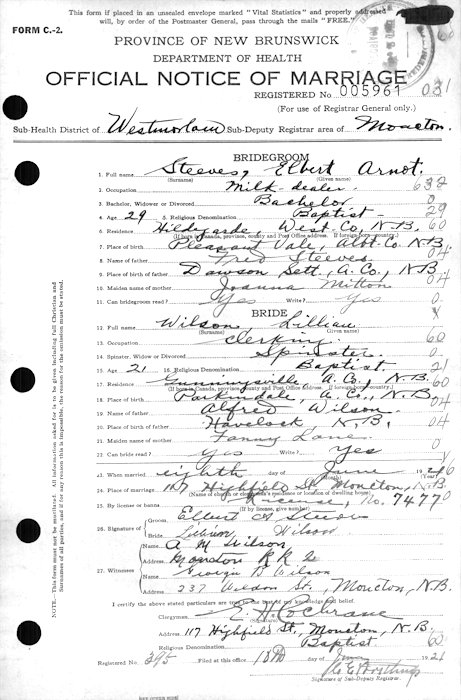 This form if placed in an unsealed envelope marked "Vital Statistics" and properly addressed
will, by order of the Postmaster General, pass through the mails "FREE."
FORM C.-2.
PROVINCE OF NEW BRUNSWICK
DEPARTMENT OF HEALTH
OFFICIAL NOTICE OF MARRIAGE
REGISTERED No. 005961
(For use of Registrar General only.)
Sub-Health District of Westmorland Sub-Deputy Registrar area of Moncton.
BRIDEGROOM
1. Full name Steeves, Elbert Arnot.
(Surname) (Given name)
2. Occupation Milk-dealer 632
3. Bachelor, Widower or Divorced Bachelor 0
4. Age 29 5. Religious Denomination Baptist 29
6. Residence Hildegarde, West Co, N.B. 60
(If born in Canada, province, county and Post Office address. If foreign-born, country.)
7. Place of birth Pleasant Vale, Albt Co N.B. 04
8. Name of father Fred Steeves
9. Place of birth of father Dawson Sett, A. Co, N.B. 04
10. Maiden name of mother Joanna Mitton
11. Can bridegroom read? Yes Write? Yes
BRIDE
12. Full name Wilson Lillian
(Surname) (Given name)
13. Occupation Clerking 60
14. Spinster, Widow or Divorced Spinster 0
15. Age 21 16. Religious Denomination Baptist 21
17. Residence Gunningsville, A. Co, N.B. 60
(If born in Canada, province, county and Post Office address. If foreign-born, country.)
18. Place of birth Parkindale, A. Co, N.B. 04
19. Name of father Alfred Wilson
20. Place of birth of father Havelock N.B. 04
21. Maiden name of mother Fanny Lane
22. Can bride read? Yes Write? Yes
23. When married eighth day of June 19
(Month)
24. Place of marriage 117 Highfield St, Moncton, N.B.
25. By license or banns License, No. 74770
(If by license, give number)
26. Signature of Groom Elbert A Steeves
Bride Lillian Wilson
27. Witness Name A M Wilson
Address Moncton R R 2
Name Georgia B Wilson
Address 237 Weldon St, Moncton, N.B.
I certify the above stated particulars are true to the best of my knowledge and belief.
Clergyman E. H. Cochrane
Address 117 Highfield St, Moncton, N.B.
Religious Denomination Baptist
Registered No. Filed at office day of June
Signature of Sub-Deputy Registrar.
NOTE.—This form must not be mutilated. All information asked for is to be given including full Christian and
Surnames of all parties, and if for any reason this is impossible, the reason for the omission must be stated.
PROVINCE OF NEW BRUNSWICK